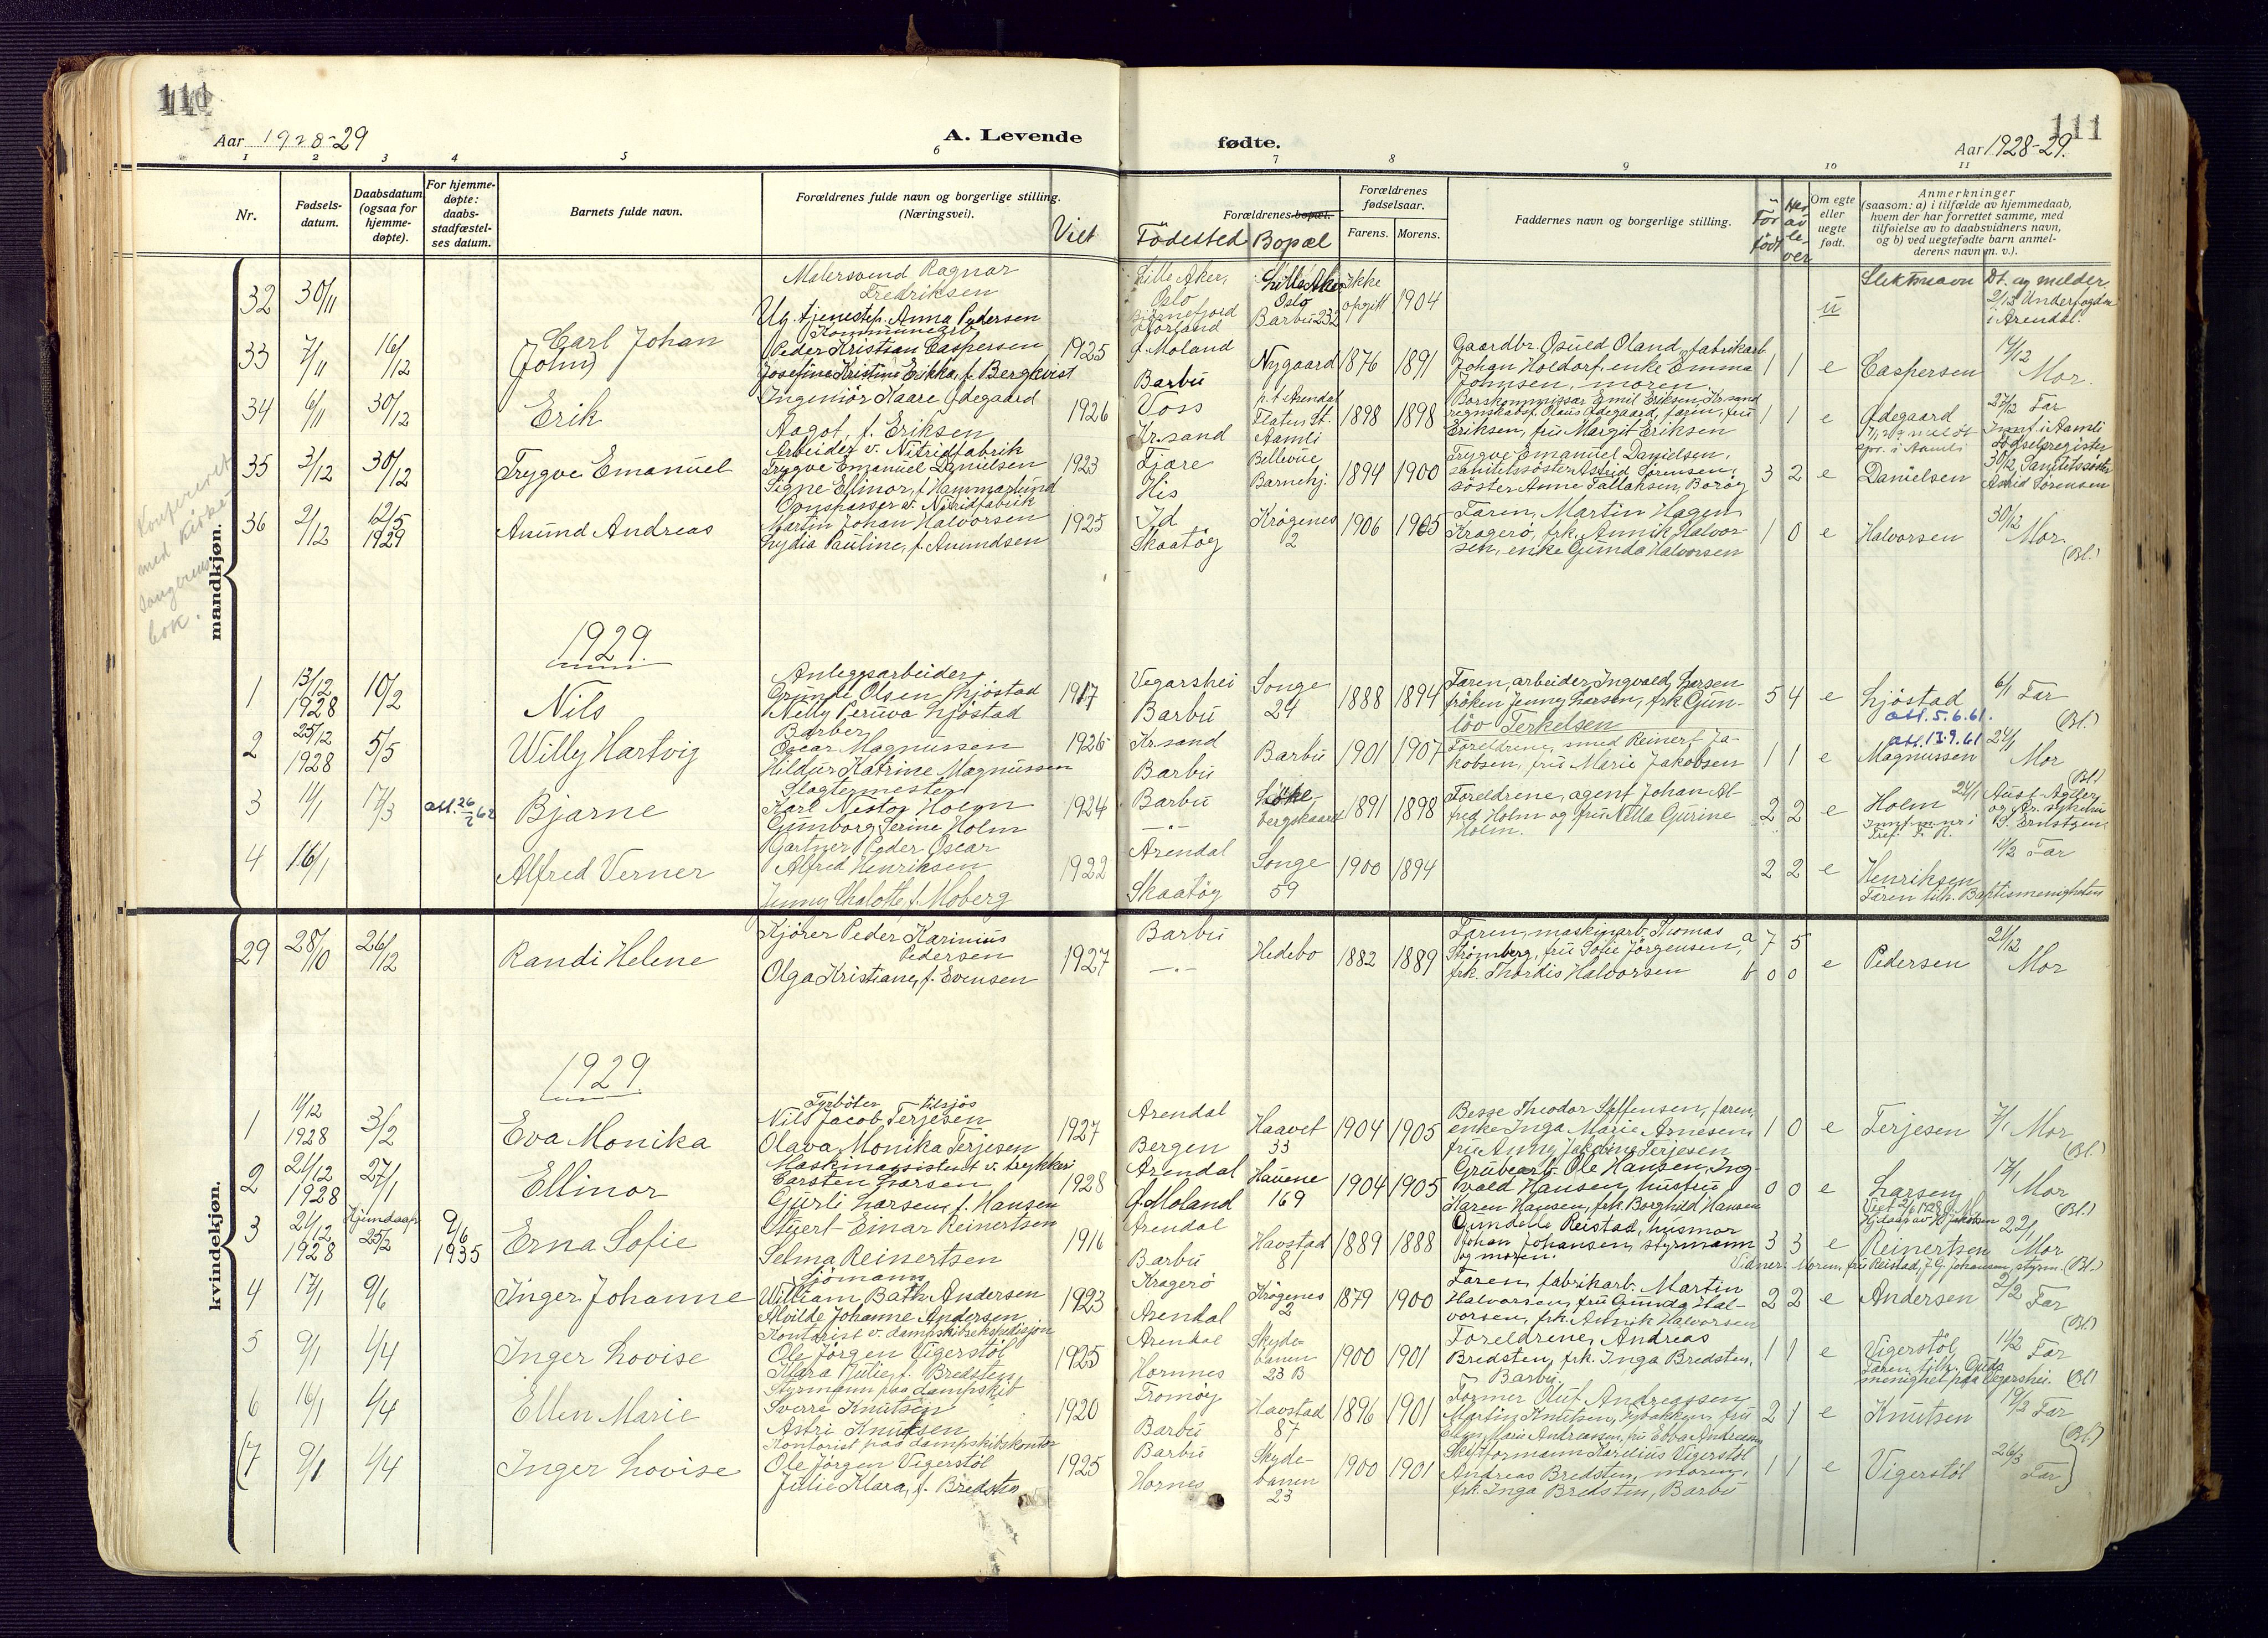 111
Aar 1928-29
A. Levende
fødte.
Aar 1928-29.
111
1 2 3 4 5 6 7 8 9 10 11
Nr.
Fødsels-
datum.
Daabsdatum
(ogsaa for
hjemme-
døpte).
For hjemme-
døpte:
daabs-
stadfæstel-
ses datum.
Barnets fulde navn.
Forældrenes fulde navn og borgerlige stilling.
(Næringsvei).
Viet
Forældrenes bopæl.
Födested Bopæl
Forældrenes
fødselsaar.
Farens. Morens.
Faddernes navn og borgerlige stilling.
Om egte
eller
uegte
født.
Anmerkninger
(saasom: a) i tilfælde av hjemmedaab,
hvem der har forrettet samme, med
tilføielse av to daabsvidners navn,
og b) ved uegtefødte barn anmel-
derens navn m. v.).
mandkjøn.
Konfereret
med
bok.
32 30/11
Malersvend Ragnar
Fredriksen
Ug. tjenestep. Anna Pedersen
Lille Aker,
Oslo
Lille Aker
Oslo
Barbu 232
Ikke
opgitt 1904
u
Slektsnavn
i Arendal.
33 7/11 16/12
Carl Johan
(John)
Kommunearb.
Peder Kristian Caspersen
Josefine Kristine Erikka, f. Bergkvist
1925
Ø. Moland
Barbu
Nygaard 1876 1891
Gaardbr. Osuld Oland, fabrikarb.
Johan Holdorf, enke Emma
Johnsen, moren.
1 1 e Caspersen 14/12
Mor.
34 6/11 30/12 Erik
Ingeniør Kaare Ødegaard
Aagot, f. Eriksen
1926
Voss
Kr.sand
p.t. Arendal
Flaten St.
Aamli
1898 1898
Borskommissær Emil Eriksen, Kr.sand
regnskabsf. Olaus Ødegaard, faren, fru
Eriksen, fru Margit Eriksen
1 1 e Ødegaard 27/12 Far
35 3/12 30/12 Trygve Emanuel
Arbeider v. Nitridfabrik
Trygve Emanuel Danielsen
Signe Ellinor, f. Hammarlund
1923
Fjære
His
Bellevue
Barnehj.
1894 1900
Trygve Emanuel Danielsen,
sanitetssöster Astrid Sørensen,
söster Anne Tallaksen,
3 2 e Danielsen
30/12 Sanitetssöster
Astrid Sørensen
36 2/12 12/5
1929
Anund Andreas
Ovnspasser v. Nitridfabrik
Martin Johan Halvorsen
Lydia Pauline, f. Anundsen
1925
Id
Skaatøy
Krøgenes
2
1906 1905
Faren, Martin Hagen
Kragerö, frk. Annik Halvor-
sen, enke Gunda Halvorsen
1 0 e Halvorsen 30/12
Mor
(Bl.)
1929
1 13/12
1928
10/2
Nils
Anlegsarbeider
Gunde Olsen Ljöstad
Nelly Peruva Ljöstad
1917
Vegarshei
Barbu
Songe
24
1888 1894
Faren, arbeider Ingvald Larsen
fröken Jenny Larsen, frk Gun-
löv Terkelsen
5 4 e Ljöstad 6/1 Far
att. 5.6.61. (Bl.)
2 25/12
1928
5/5
Willy Hartvig
Barber
Oscar Magnussen
Hildur Katrine Magnussen
1926
Kr.sand
Barbu
Barbu 1901 1907
Foreldrene, smed Reinert Ja-
kobsen, fru Marie Jakobsen
1 1 e
att. 13.9.61
Magnussen 24/1
Mor
(Bl.)
3 11/1 17/3 att. 26/2 62
Bjarne
Slagtermester
Karl Nestor Holm
Gunborg Serine Holm
1924
Barbu
—"—
1891 1898
Foreldrene, agent Johan Al-
fred Holm og fru Netta Gurine
Holm.
2 2 e Holm 24/1
4 16/1
Alfred Verner
Gartner Peder Oscar
Alfred Henriksen
Jenny Chalotte, f. Moberg
1922
Arendal
Skaatøy
Songe
59
1900 1894
2 2 e Henriksen 11/2 Far
Faren tilh. Baptistmenigheten
kvindekjøn.
29 28/10 26/12
Randi Helene
Kjörer Peder Karinius
Pedersen
Olga Kristiane, f. Evensen
1927
Barbu
—"—
Hedebo 1882 1889
Faren, maskinarb. Thomas
Strømberg, fru Sofie Jørgensen,
frk. Thordis Halvorsen
a 7 5
b 0 0
e Pedersen 21/12
Mor
1929
1 11/12
1928
3/2
Eva Monika
Fyrböter tilsjös
Nils Jacob Terjesen
Olava Monika Terjesen
1927
Arendal
Bergen
Haavet
33
1904 1905
Besse Theodor Steffensen, faren,
enke Inga Marie Arnesen,
fru Anny Jakobine Terjesen
1 0 e Terjesen 7/1 Mor
(Bl.)
2 21/12
1928
27/1
Ellinor
Maskinassistent v. trykkeri
Carsten Larsen
Gurli Larsen, f. Hansen
1928
Arendal
Ø. Moland
Hauene
169
1904 1905
Grubearb. Ole Hansen, Ing-
vald Hansen, hustru
Karen Hansen, frk. Borghild Hansen
0 0 e Larsen 17/1
Mor
(Bl.)
3 21/12
1928
Hjemdaap
25/2
9/6
1935
Erna Sofie
Stuert Einar Reinertsen
Selma Reinertsen
1916
Arendal
Barbu
Havstad
87
1889 1888
Gundelle Reistad, husmor
Johan Johansen, styrmann
og moren.
3 3 e
Hj.daap av H. Jakobsen
Reinertsen 22/1
Mor
Vidner: Moren, fru Reistad, J. G. Johansen, styrm. (Bl.)
4 17/1 9/6
Inger Johanne
Sjömann
William Bath Andersen
Alvilde Johanne Andersen
1923
Kragerö
Arendal
Krögenes
2
1879 1900
Faren, fabrikarb. Martin
Halvorsen, fru Gunda Hal-
vorsen, frk. Annik Halvorsen
2 2 e Andersen 2/2 Far
(Bl.)
5 9/1 1/4
Inger Lovise
Kontorist v. dampskibsekspedisjon
Ole Jörgen Vigerstöl
Klara Julie, f. Bredsten
1925
Arendal
Hornnes
Skyde-
banen
23 B
1900 1901
Foreldrene, Andreas
Bredsten, frk. Inga Bredsten,
Barbu.
1 1 e Vigerstöl 11/2 Far
menighet paa Vegarshei. (Bl.)
6 16/1 1/4
Ellen Marie
Styrmann paa dampskib
Sverre Knutsen
Astri Knutsen
1920
Tromøy
Barbu
Havstad
87
1896 1901
Former Oluf Andreassen
Martin Knutsen, fru
Ellen Marie Andreassen, fru Ebba Andreassen
2 1 e Knutsen 19/2 Far
(Bl.)
(7 9/1 1/4
Inger Lovise
Kontorist paa dampskibskontor
Ole Jörgen Vigerstöl
Julie Klara, f. Bredsten
1925
Barbu
Hornes
Skyde-
banen
23
1900 1901
Karelius Vigerstöl
Andreas Bredsten, moren,
frk. Inga Bredsten, Barbu
1 1 e Vigerstöl 26/3
Far)